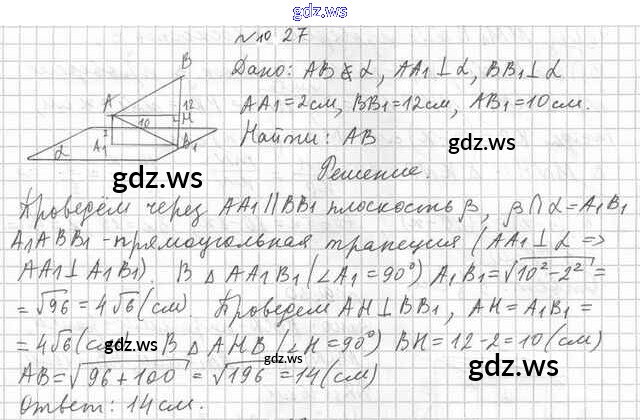 gdz.ws
№10.27
Дано: AB ⊄ α, AA1 ⊥ α, BB1 ⊥ α
AA1 = 2см, BB1 = 12см, AB1 = 10см.
Найти: AB
Решение.
B
A
12
10
H
2
A1
B1
α
gdz.ws
gdz.ws
Проведём через AA1 || BB1 плоскость β, β ∩ α = A1B1
A1ABB1 - прямоугольная трапеция (AA1 ⊥ α =>
AA1 ⊥ A1B1). В Δ AA1B1 (∠A1 = 90°) A1B1 = √10² - 2² =
= √96 = 4√6 (см). Проведем AH ⊥ BB1, AH = A1B1 =
= 4√6 (см). В Δ AHB (∠H = 90°) BH = 12 - 2 = 10 (см)
AB = √96 + 100 = √196 = 14 (см)
Ответ: 14 см.
gdz.ws
gdz.ws
gdz.ws